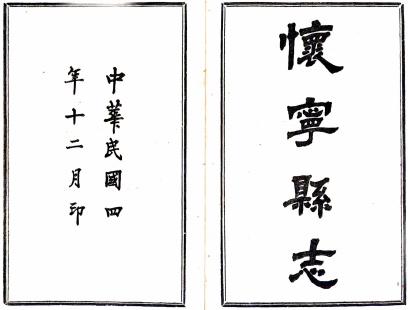 懷寧縣志
中華民國四
年十二月印